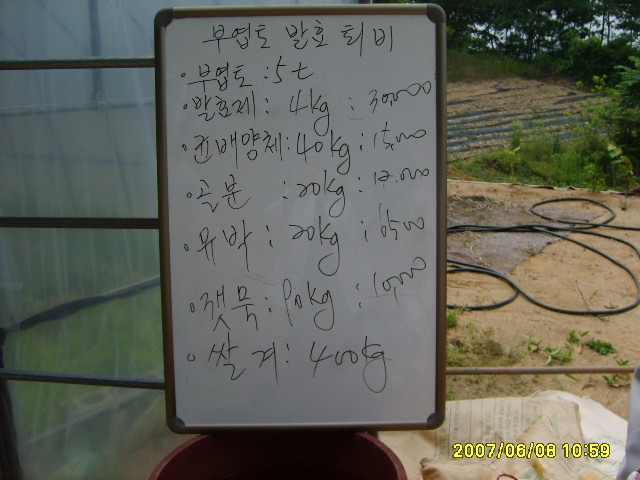 부엽토 발효 퇴비
·부엽토 : 5t
·발효제 : 4kg : 30,000
·균배양체 : 40kg : 15,000
·골분 : 20kg : 12,000
·유박 : 20kg : 6500
·깻묵 : 90kg : 10,000
·쌀겨 : 400kg
2007/06/08 10:59